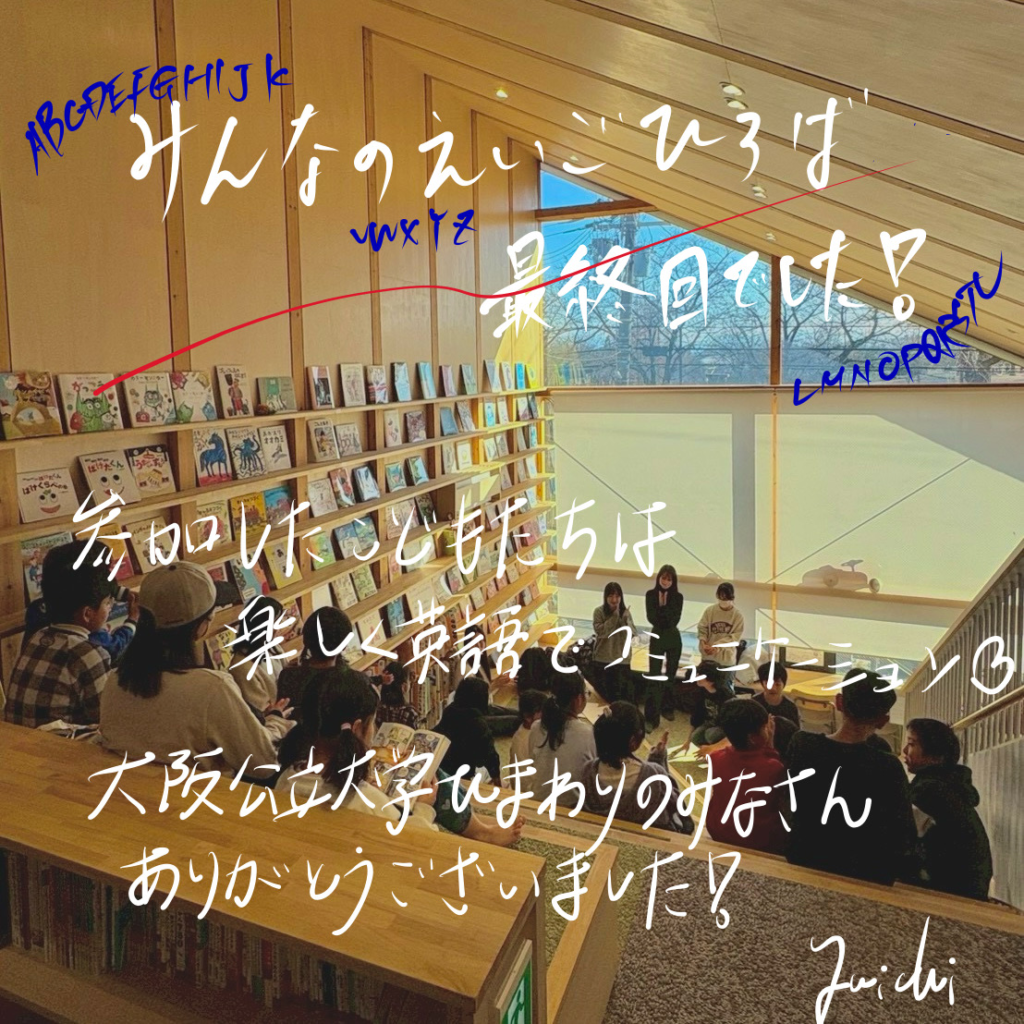 ABCDEFGHIJK
みんなのえいごひろば
VWXYZ
最終回でした!
LMNOPQRSTU
参加したこどもたちは
楽しく英語でコミュニケーション
大阪公立大学ひまわりのみなさん
ありがとうございました!